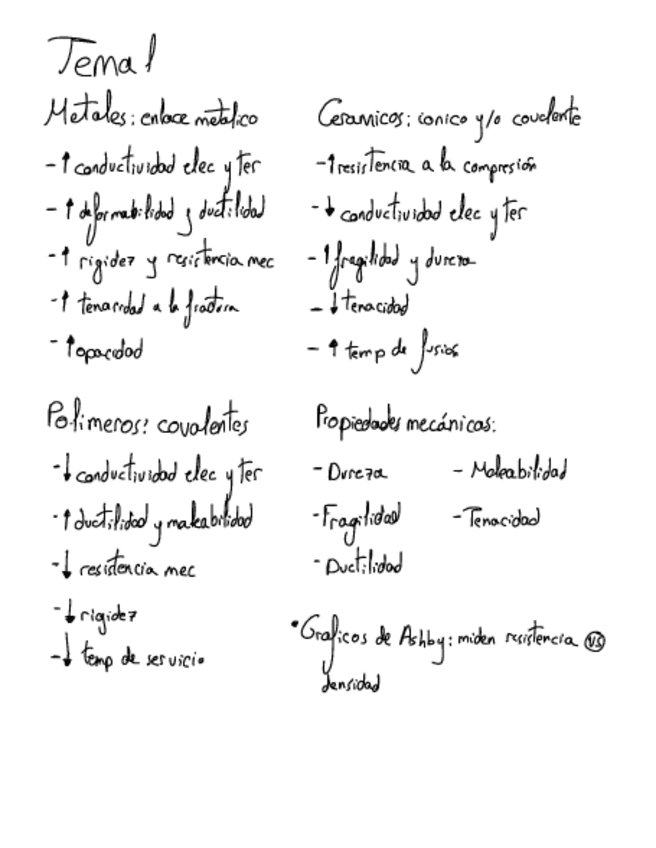 Tema 1
Metales: enlace metalico
- ↑ conductividad elec y ter
- ↑ deformabilidad y ductilidad
- ↑ rigidez y resistencia mec
- ↑ tenacidad a la fractura
- ↑ opacidad
Ceramicos: ionico y/o covalente
- ↑ resistencia a la compresión
- ↓ conductividad elec y ter
- ↑ fragilidad y dureza
- ↓ tenacidad
- ↑ temp de fusion
Polimeros: covalentes
- ↓ conductividad elec y ter
- ↑ ductilidad y maleabilidad
- ↓ resistencia mec
- ↓ rigidez
- ↓ temp de servicio
Propiedades mecánicas:
- Dureza - Maleabilidad
- Fragilidad - Tenacidad
- Ductilidad
• Graficos de Ashby: miden resistencia vs
densidad